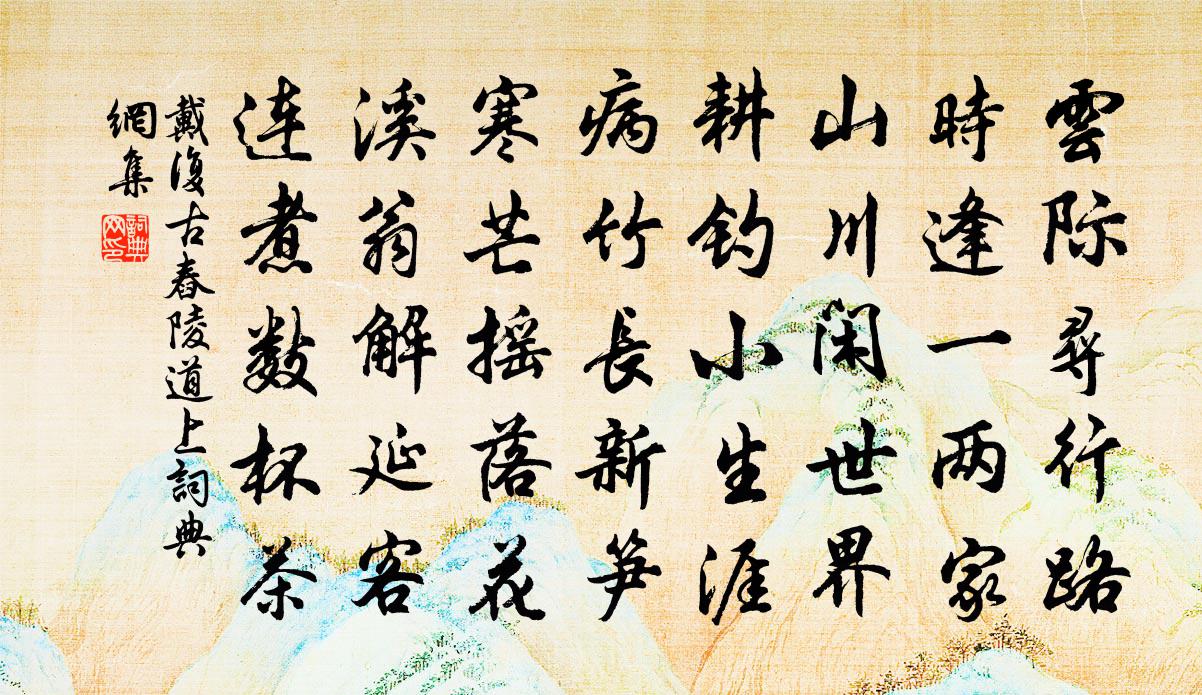 雲際尋行路
時逢一两家
山川闲世界
耕钓小生涯
病竹長新笋
寒芒摇落花
溪翁解延客
连煮数杯茶
戴復古舂陵道上詞典
網集
詞典
网印